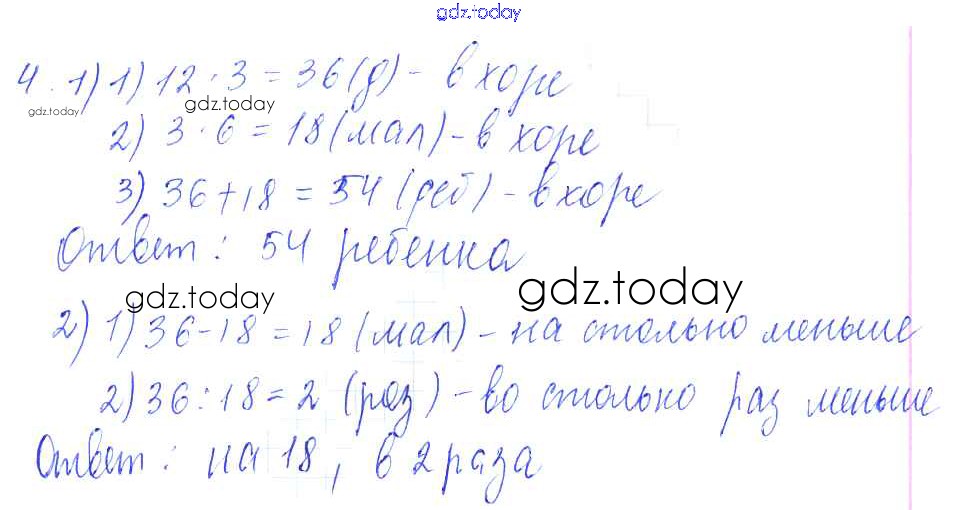 gdz.today
4. 1) 1) 12 · 3 = 36 (д) - в хоре
gdz.today gdz.today
2) 3 · 6 = 18 (мал) - в хоре
3) 36 + 18 = 54 (реб) - в хоре
Ответ: 54 ребенка
gdz.today gdz.today
2) 1) 36 - 18 = 18 (мал) - на столько меньше
2) 36 : 18 = 2 (раз) - во столько раз меньше
Ответ: на 18, в 2 раза